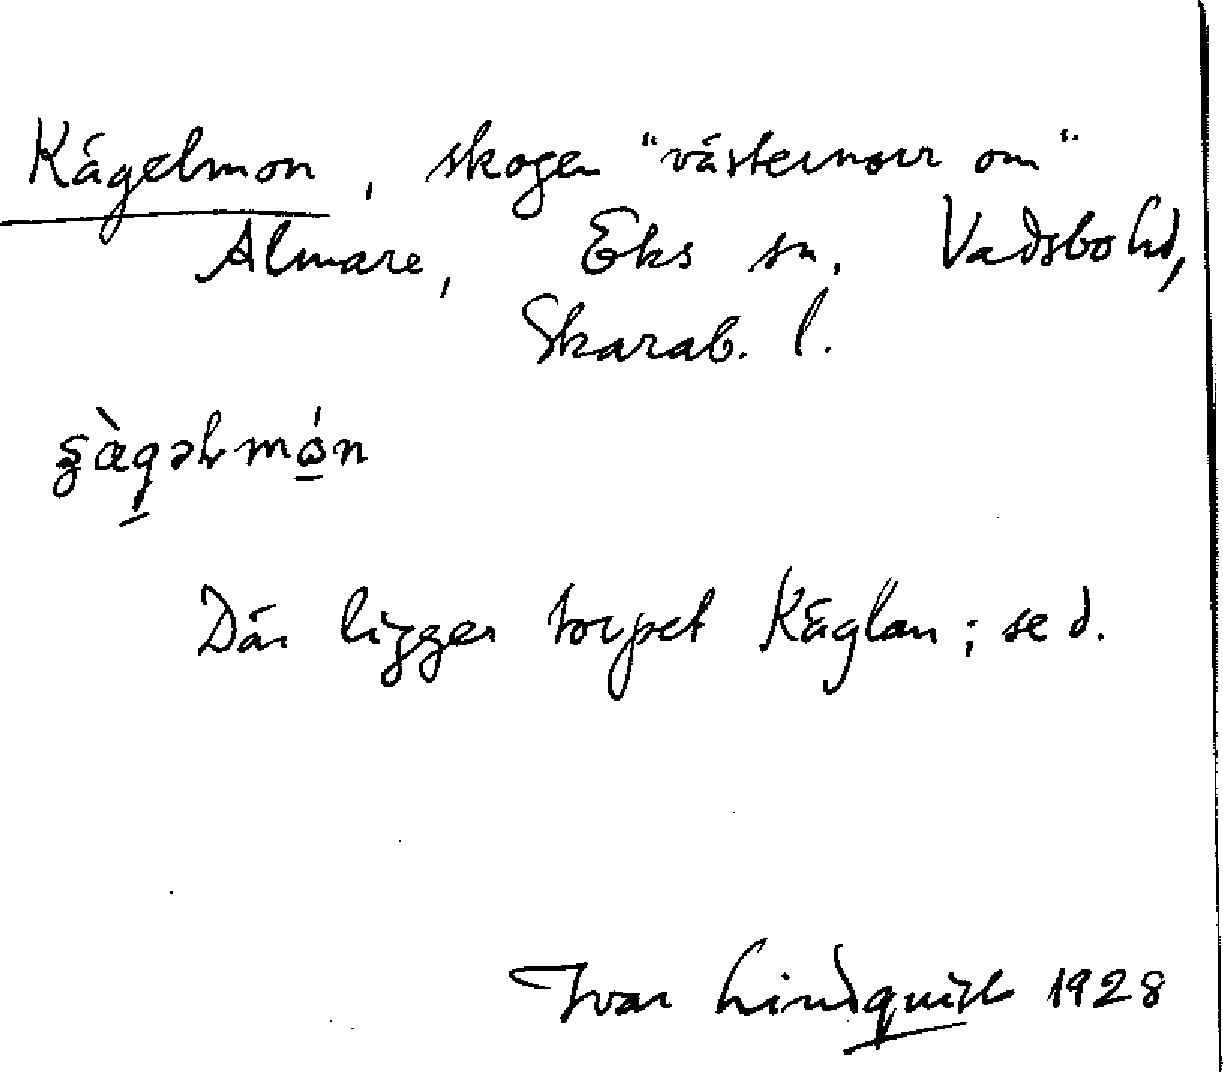 Kägelmon, skogen "västernorr om"
Almare, Eks sn, Vadsbo hd,
Skarab. l.
Där ligger torpet Käglan; se d.
Ivar Lindquist 1928